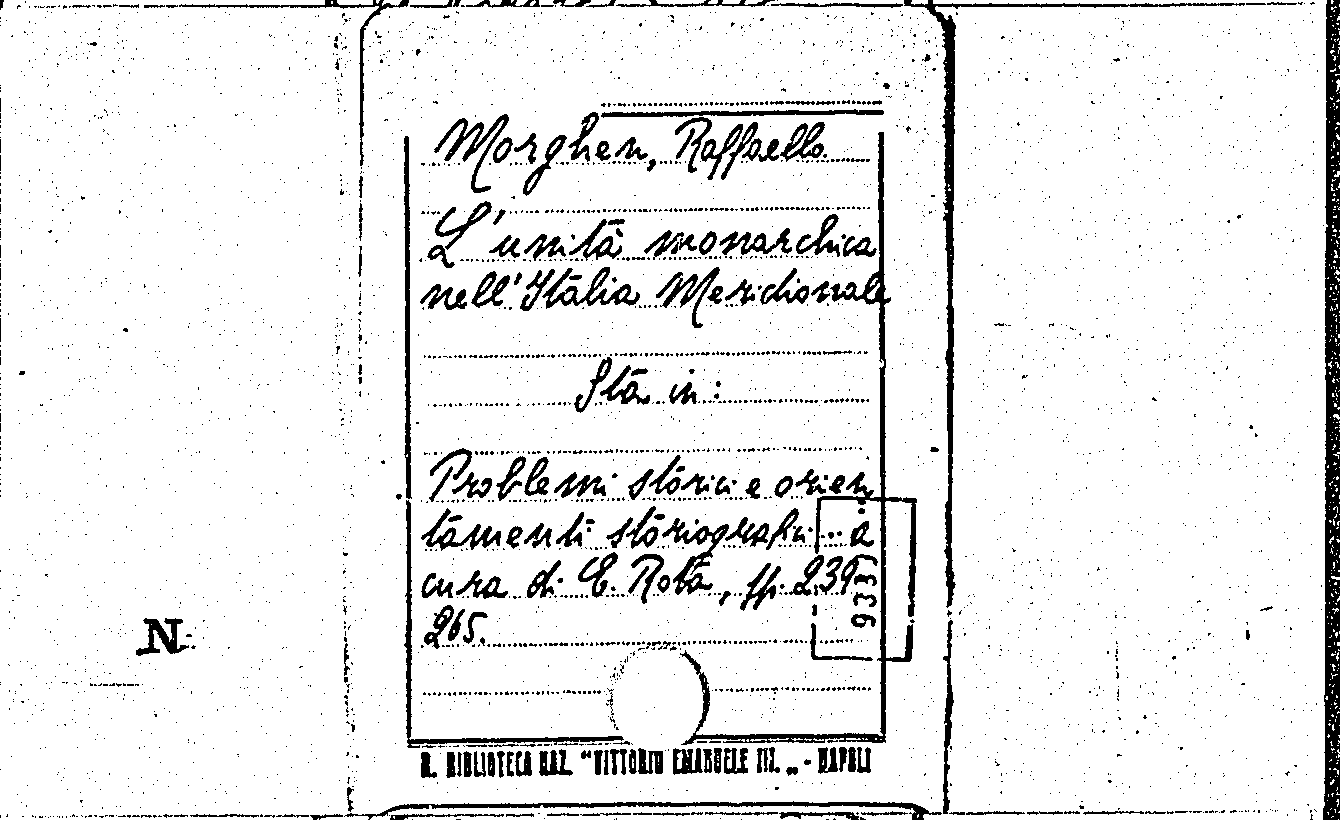 Morghen, Raffaello
L'unità monarchica
nell'Italia Meridionale
Sta in:
Problemi storici e orien
tamenti storiografici ... a
cura di E. Rota, pp. 239-
265.
N
R. BIBLIOTECA NAZ. "VITTORIO EMANUELE III. „ - NAPOLI